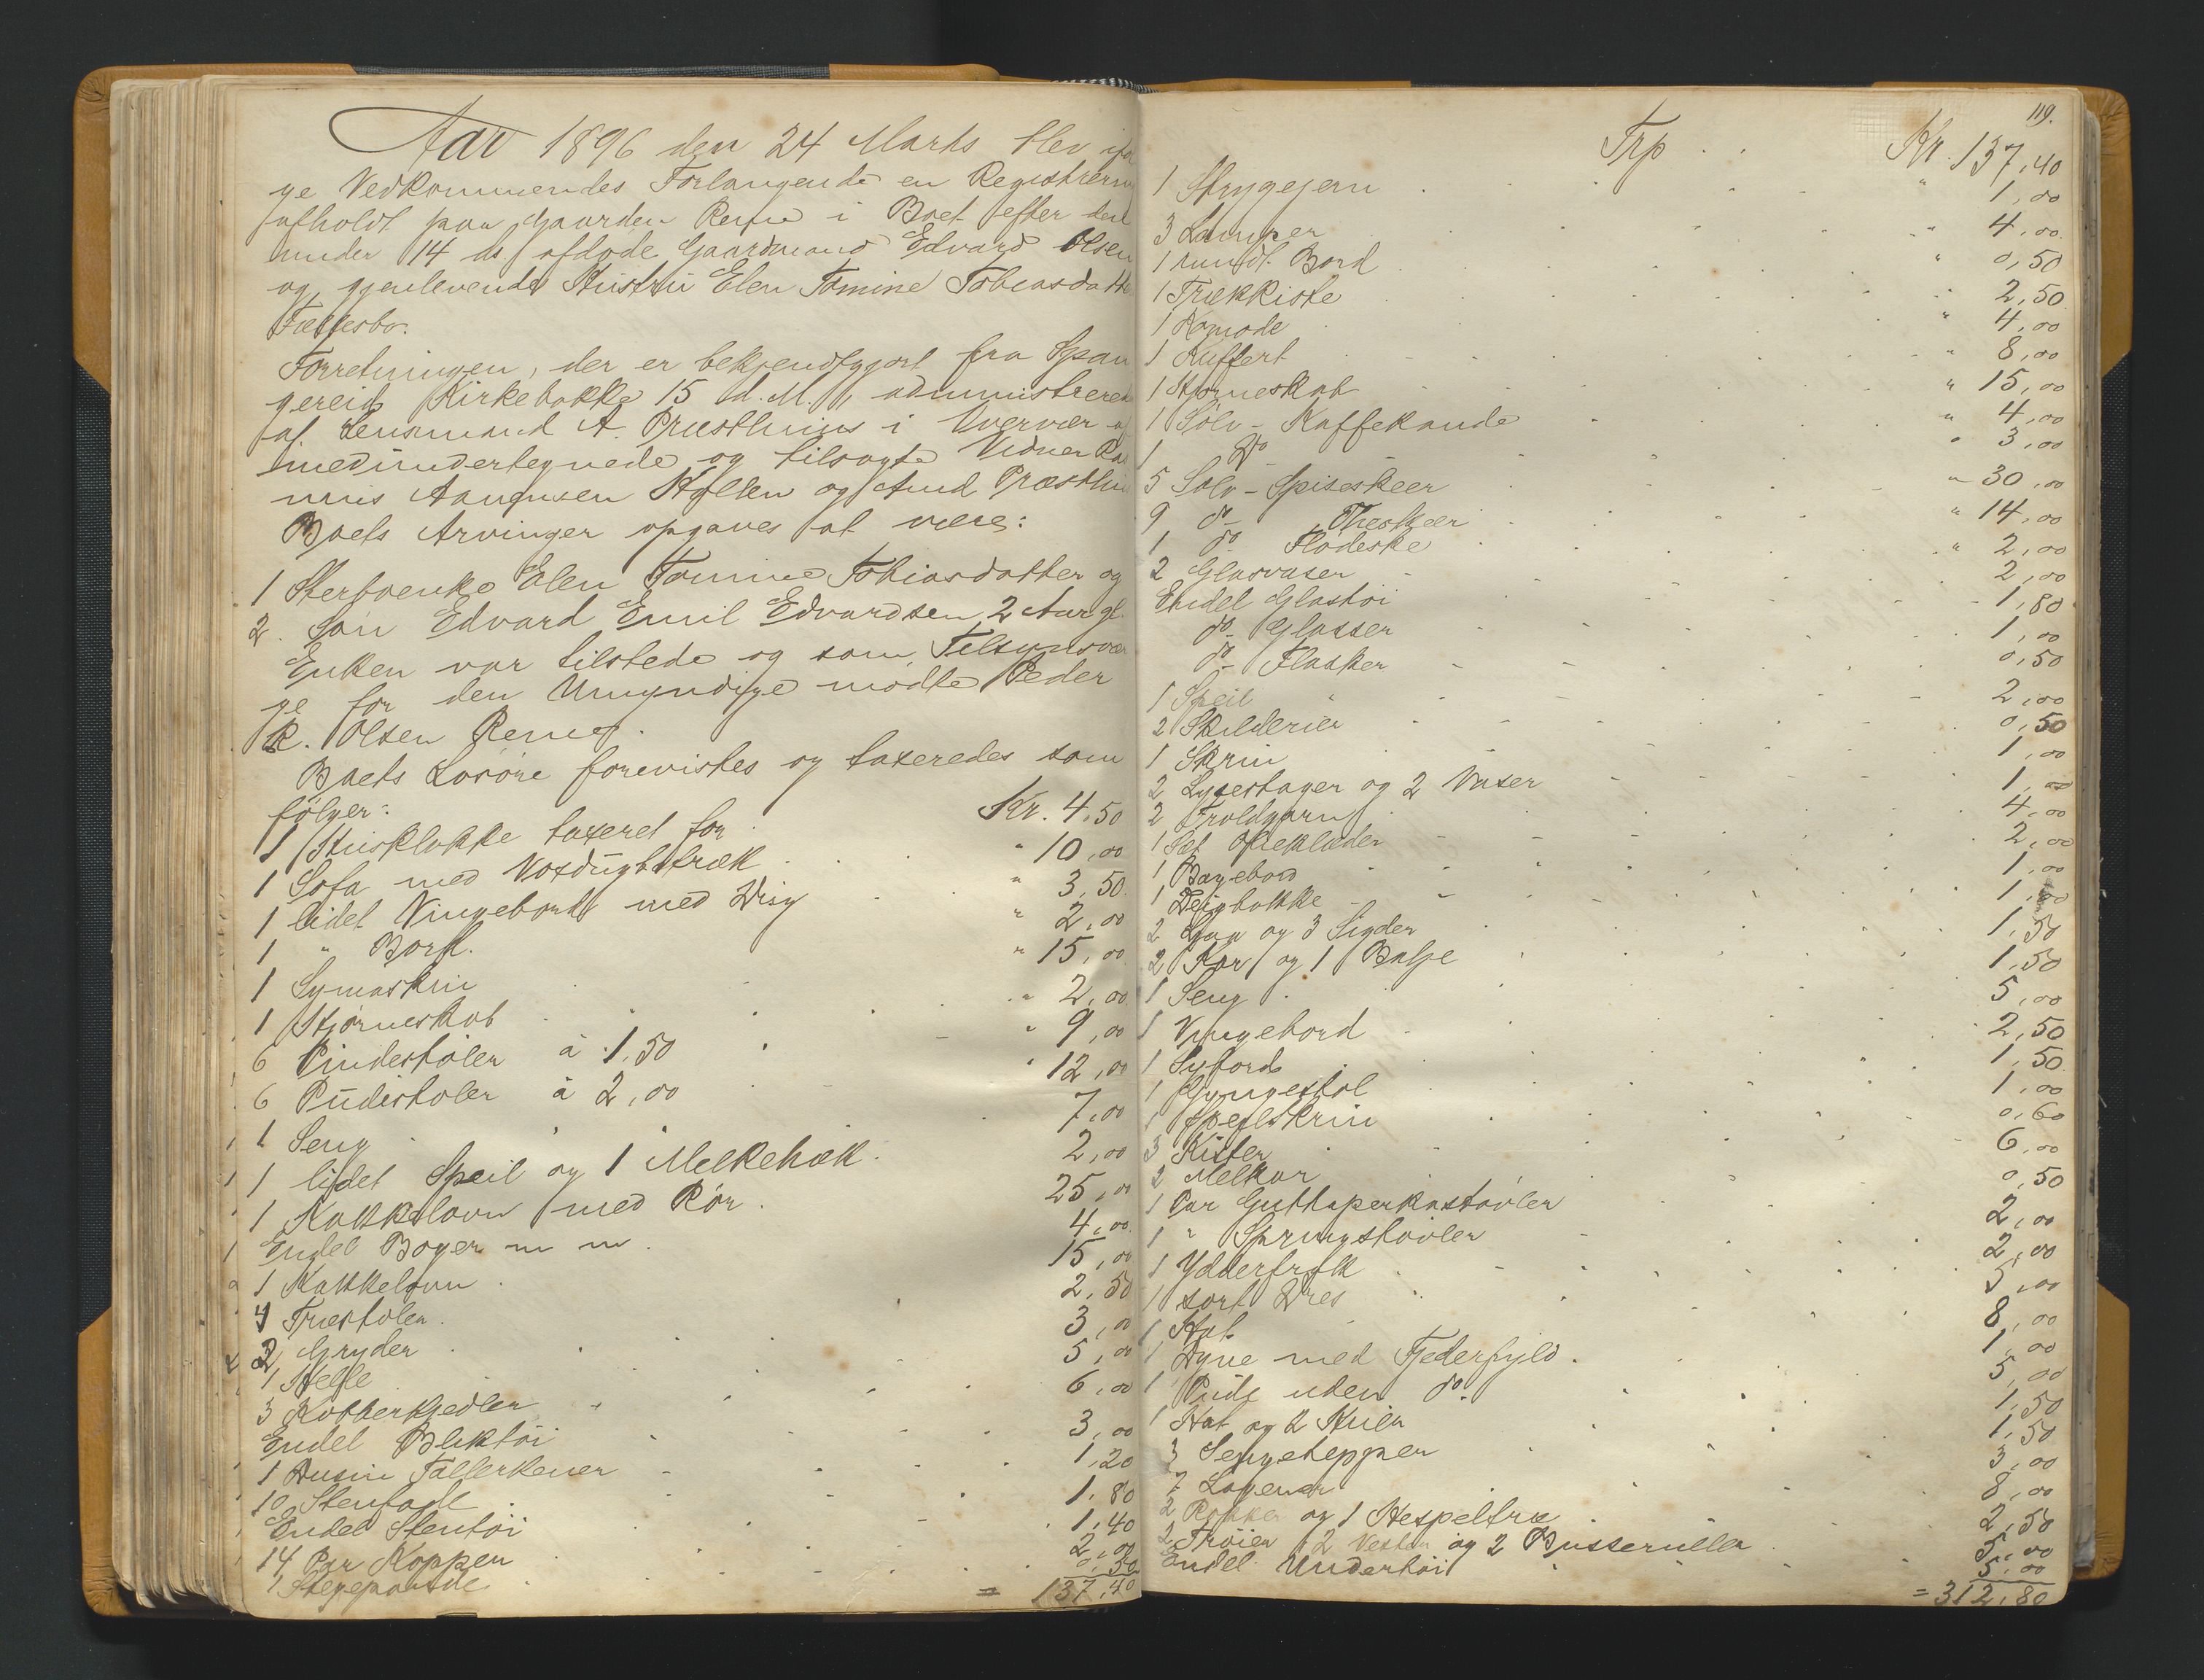 Aar 1896 den 24 Marts blev iføl
ge Vedkommendes Forlangende en Registrering
afholdt paa Gaarden Reme i Boet efter den
under 14 ds. afdøde Gaardmand Edvard Olsen
og gjenlevende Hustru Elen Tomine Tobiasdatter
Fællesbo.
Forretningen, der er bekjendtgjort fra Span
gereid Kirkebakke 15 d. M., administreredes
af Lensmand A. Præsthus i Overvær af
medundertegnede og tilsagte Vidner Ras
mus Aanensen Hollen og Amd Præsthus
Boets Arvinger opgaves at være:
1 Sterboenke Elen Tomine Tobiasdatter og
2. Søn Edvard Emil Edvardsen 2 Aar gl.
Enken var tilstede og som Tilsynsvær
ge for den Umyndige mødte Peder
R. Olsen Reme.
Boets Løsøre forevistes og taxeredes som
følger:
1 Stueklokke taxeret for Kr. 4,50
1 Sofa med Voxdugbetræk " 10,00
1 lidet Vingebord med Dug " 3,50
1 " Bord. " 2,00
1 Symaskin " 15,00
1 Hjørneskab " 2,00
6 Pindestoler à 1,50 " 9,00
6 Pudestoler à 2,00 " 12,00
1 Seng 7,00
1 lidet Speil og 1 Melkehæk. 2,00
1 Kakkelovn med Rør. 25,00
Endel Bøger m m. 4,00
1 Kakkelovn 15,00
4 Træstoler. 2,50
2 Gryder 3,00
1 Helle 5,00
3 Kobberkjedler 6,00
Endel Bliktøi 3,00
1 Dusin Tallerkener 1,20
10 Stenfade 1,80
Endel Stentøi 1,40
14 Par Kopper 2,00
1 Stegepande 0,50
= 137,40
119.
Trp . . Kr. 137,40
1 Strygejern " 1,00
3 Lamper " 4,00
1 rundt Bord " 0,50
1 Trækkiste " 2,50
1 Komode " 4,00
1 Kuffert " 8,00
1 Hjørneskab " 15,00
1 Sølv-Kaffekande " 4,00
1 Do " 3,00
5 Sølv-Spiseskeer " 30,00
9 do Theskeer " 14,00
1 do Flødeske " 2,00
2 Glasvaser 2,00
Endel Glastøi 1,80
do Glasser 1,00
do Flasker 0,50
1 Speil 2,00
2 Skilderier 0,50
1 Skrin 1,00
2 Lysestager og 2 Vaser 1,00
2 Troldgarn 4,00
1 Sæt Olieklæder 2,00
1 Bagebord 1,00
1 Deigbakke 1,00
2 Ljaa og 3 Sigder 1,50
2 Kar og 1 Balje 1,50
1 Seng 5,00
1 Vingebord 2,50
1 Sybord 1,50
1 Gyngestol 1,00
1 Speilskrin 0,60
3 Kister 6,00
2 Melkar 0,50
1 Par Guttaperkastøvler 2,00
1 " Springstøvler 2,00
1 Ydderfrak 5,00
1 sort Dres 8,00
1 Hat 1,00
1 Dyne med Fjederfyld. 5,00
1 Pude uden do. 1,50
1 Hat og 2 Huer 1,50
3 Sengetepper 3,00
7 Lagener 8,00
2 Rokker og 1 Hespeltræ 2,50
2 Trøier 2 Vester og 2 Busseruller 5,00
Endel Undertøi 5,00
= 312,80